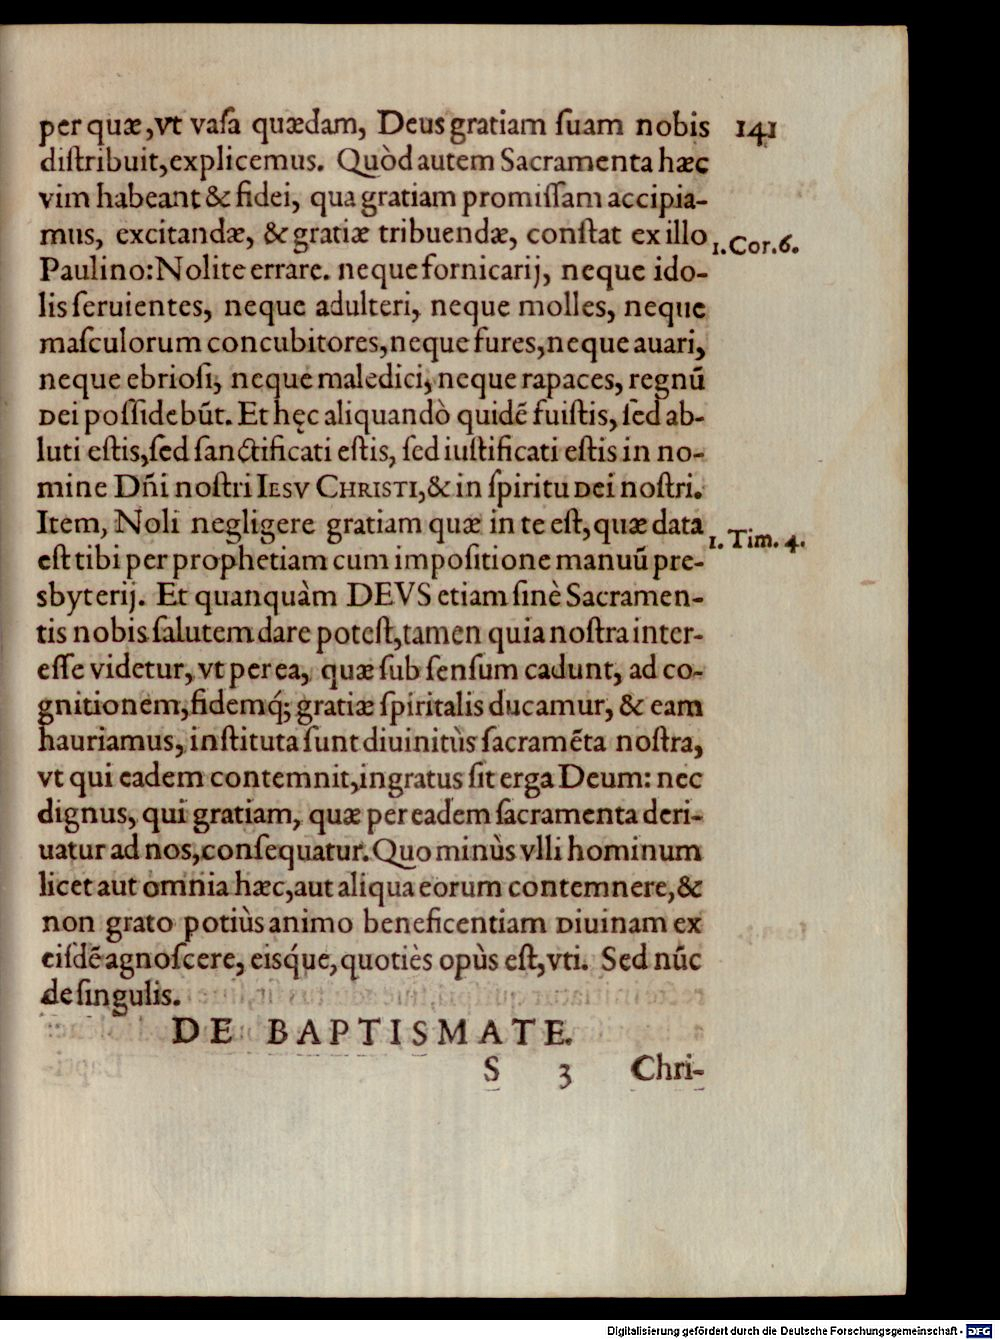 per quæ, vt vaſa quædam, Deus gratiam ſuam nobis 141
diſtribuit, explicemus. Quòd autem Sacramenta hæc
vim habeant & fidei, qua gratiam promiſſam accipia-
mus, excitandæ, & gratiæ tribuendæ, conſtat ex illo 1. Cor. 6.
Paulino: Nolite errare. neque fornicarij, neque ido-
lis ſeruientes, neque adulteri, neque molles, neque
maſculorum concubitores, neque fures, neque auari,
neque ebrioſi, neque maledici, neque rapaces, regnũ
DEI poſſidebũt. Et hęc aliquandò quidẽ fuiſtis, ſed ab-
luti eſtis, ſed ſanctificati eſtis, ſed iuſtificati eſtis in no-
mine Dñi noſtri IESV CHRISTI, & in ſpiritu DEI noſtri.
Item, Noli negligere gratiam quæ in te eſt, quæ data 1. Tim. 4.
eſt tibi per prophetiam cum impoſitione manuũ pre-
sbyterij. Et quanquàm DEVS etiam ſinè Sacramen-
tis nobis ſalutem dare poteſt, tamen quia noſtra inter-
eſſe videtur, vt per ea, quæ ſub ſenſum cadunt, ad co-
gnitionem, fidemq́; gratiæ ſpiritalis ducamur, & eam
hauriamus, inſtituta ſunt diuinitùs ſacramẽta noſtra,
vt qui eadem contemnit, ingratus ſit erga Deum: nec
dignus, qui gratiam, quæ per eadem ſacramenta deri-
uatur ad nos, conſequatur. Quo minùs vlli hominum
licet aut omnia hæc, aut aliqua eorum contemnere, &
non grato potiùs animo beneficentiam DIuinam ex
eiſdẽ agnoſcere, eisq́ue, quotiès opùs eſt, vti. Sed nũc
de ſingulis.
DE BAPTISMATE.
S 3 Chri-
Digitalisierung gefördert durch die Deutsche Forschungsgemeinschaft - DFG